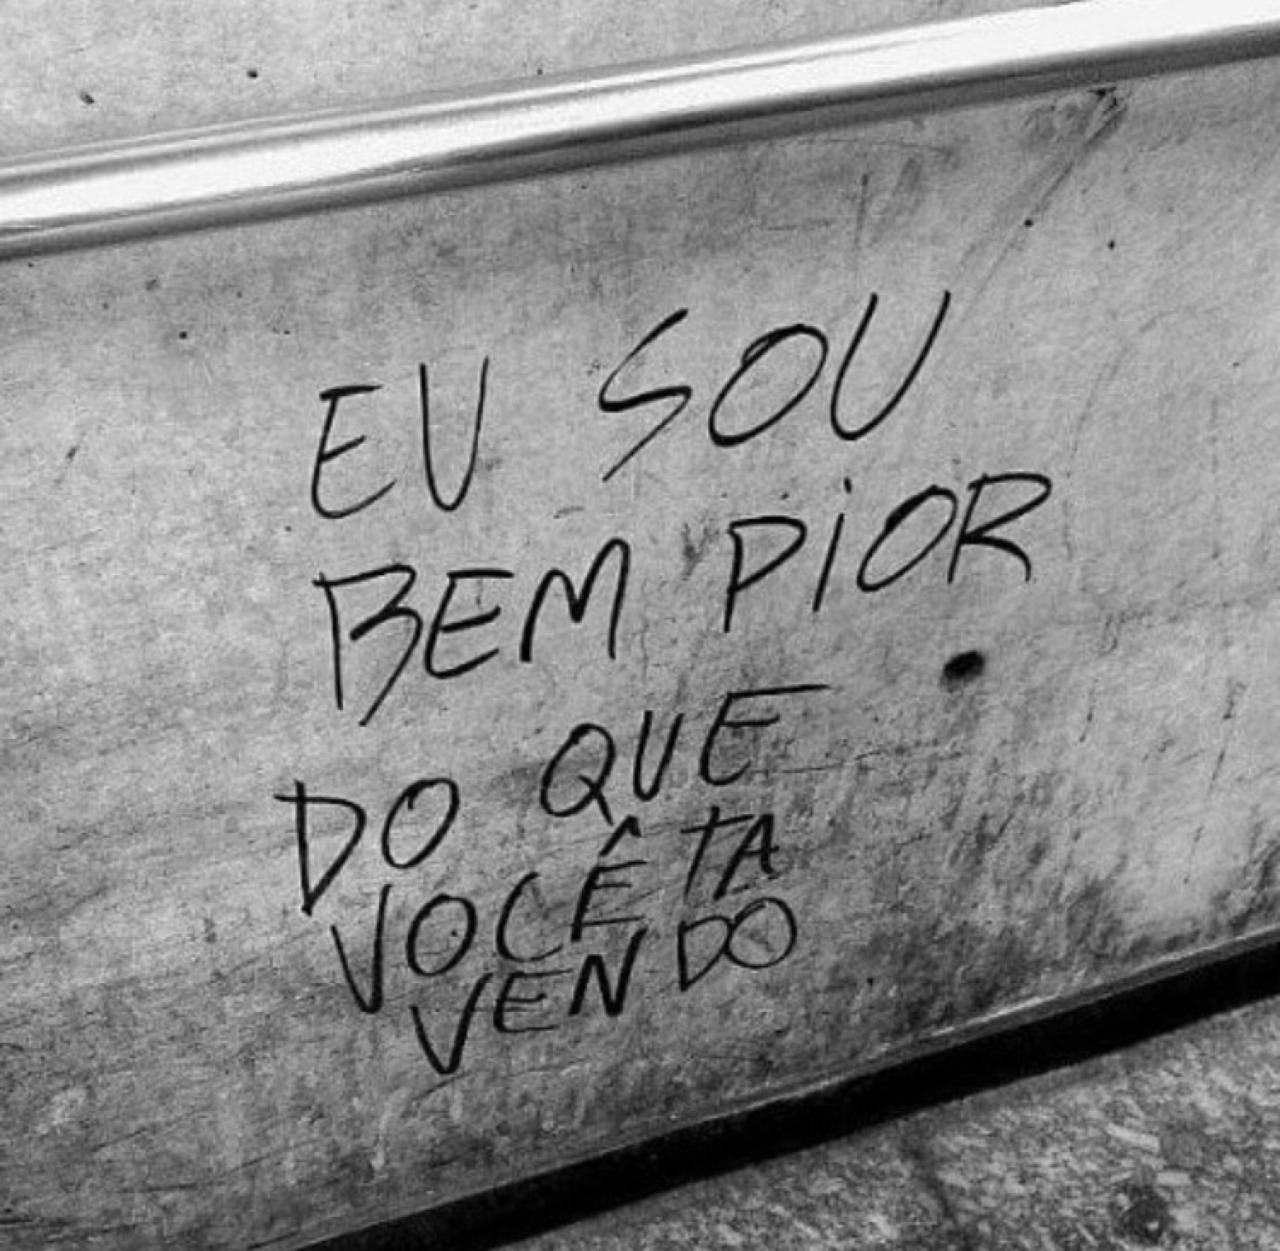 EU SOU
BEM PiOR
DO QUE
VOCÊ TA
VENDO